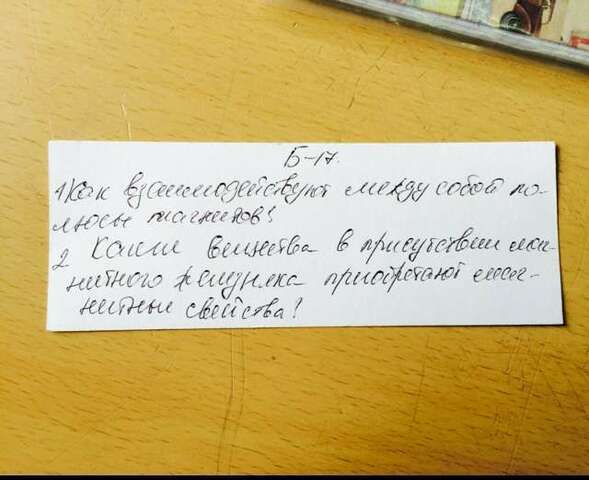 Б-17.
1 Как взаимодействуют между собой по-
люсы магнитов?
2 Какие вещества в присутствии маг-
нитного железняка приобретают маг-
нитные свойства?